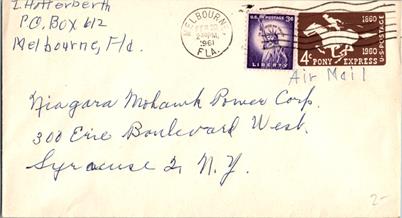 I. Hotterberth
P.O. Box 612
Melbourne, Fla.
MELBOURNE
1961
FLA.
U.S. POSTAGE 3¢
LIBERTY
1860
1960
U.S. POSTAGE
4¢ PONY EXPRESS
Air Mail
Niagara Mohawk Power Corp.
300 Erie Boulevard West.
Syracuse 2, N.Y.
2-